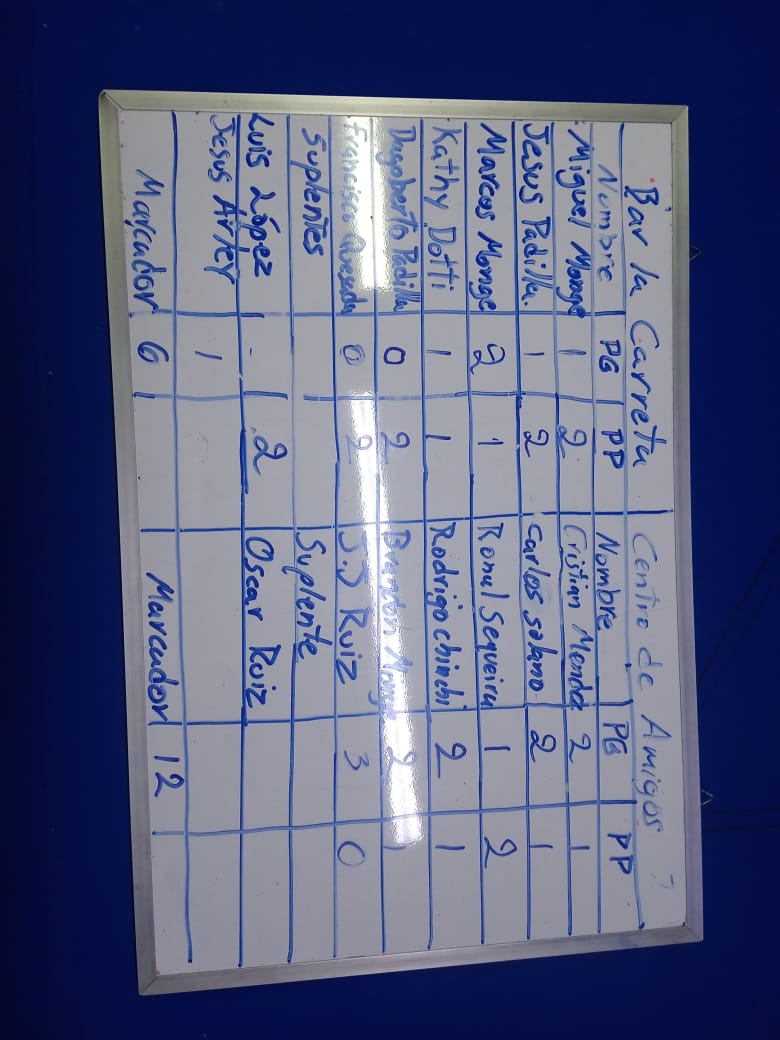 Bar la Carreta Centro de Amigos 7
Nombre PG PP Nombre PG PP
Miguel Monge 1 2 Cristian Mendez 2 1
Jesus Padilla 1 2 Carlos solano 2 1
Marcos Monge 2 1 Ronal Sequeira 1 2
Kathy Dotti 1 1 Rodrigo chinchi 2 1
Dagoberto Padilla 0 2 Brandon Monge 2 1
Francisco Quesada 0 2 J.J Ruiz 3 0
Suplentes Suplente
Luis López - 2 Oscar Ruiz
Jesus Arley 1
Marcador 6 Marcador 12